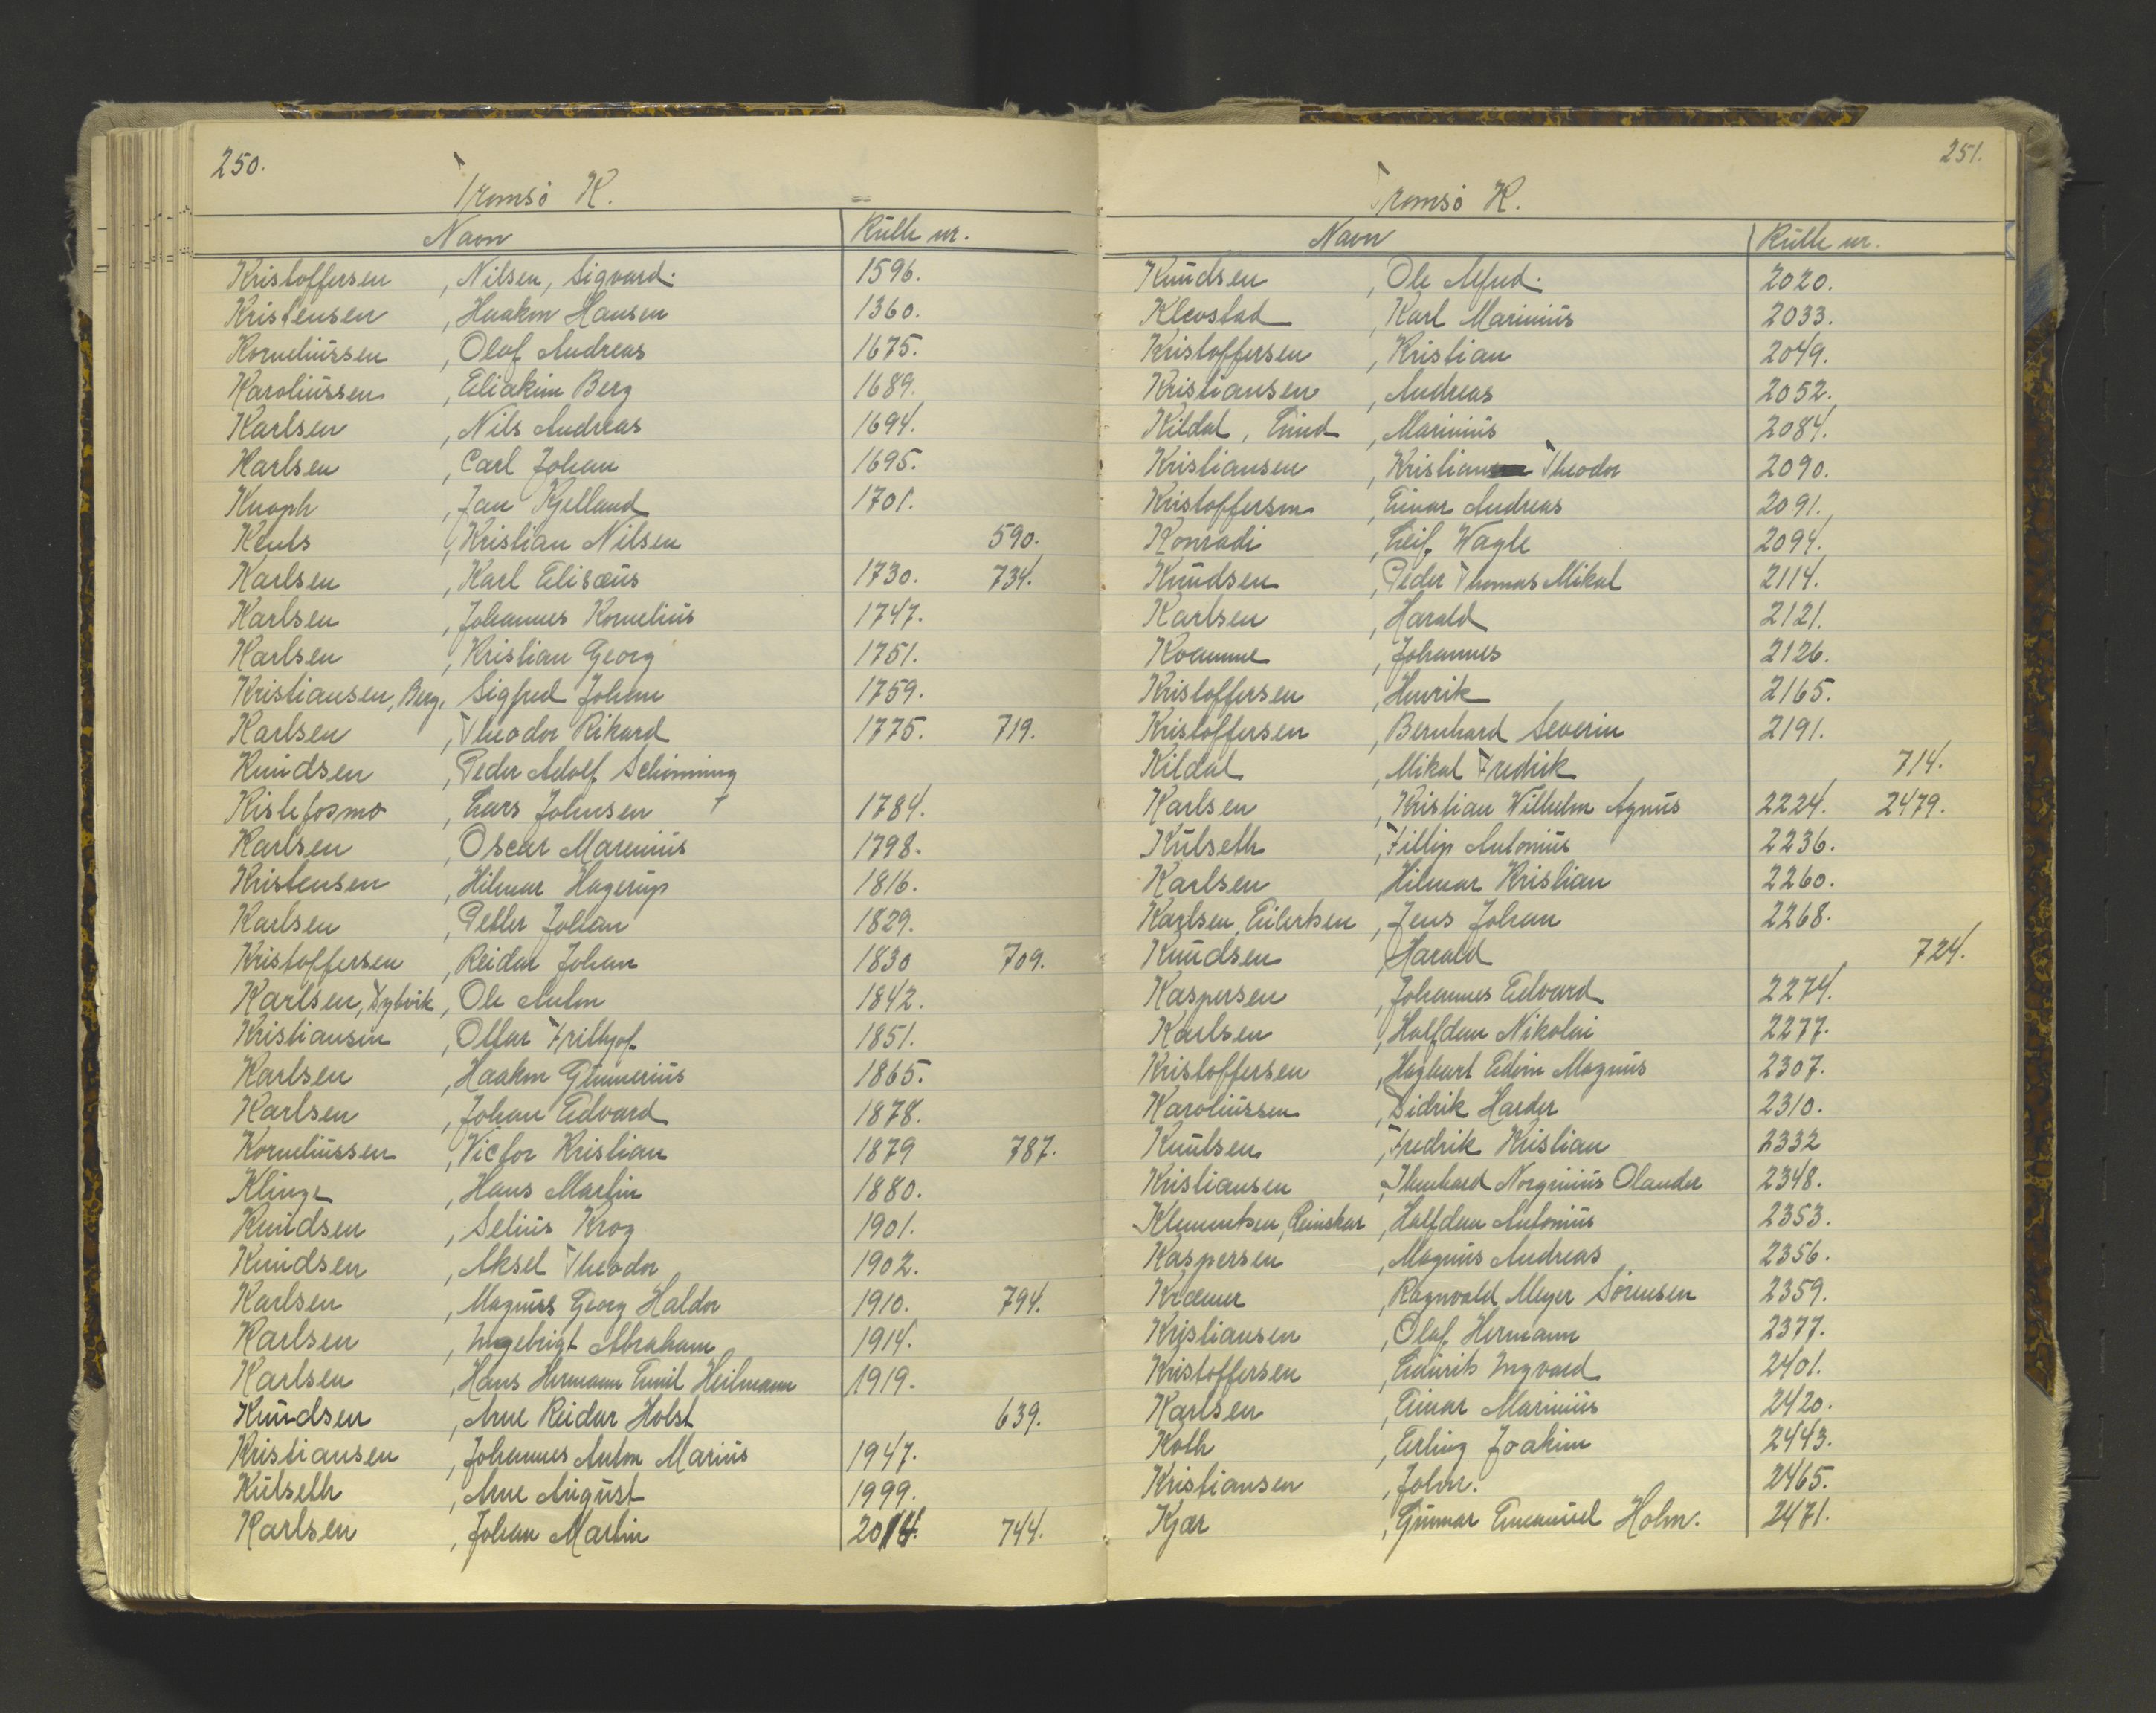 250.
Tromsö K.
Navn Rulle nr.
Kristoffersen , Nilsen, Sigvard. 1596.
Kristensen , Haakon Hansen 1360.
Korneliussen , Olaf Andreas 1675.
Karoliussen , Eliakim Berg 1689.
Karlsen , Nils Andreas 1694.
Karlsen , Carl Johan 1695.
Knoph , Jan Kjelland 1701.
Keuls , Kristian Nilsen 590.
Karlsen , Karl Elisæus 1730. 734.
Karlsen , Johannes Kornelius 1747.
Karlsen , Kristian Georg 1751.
Kristiansen, Berg, Sigfred Johan 1759.
Karlsen , Theodor Rikard 1775. 719.
Knudsen , Peder Adolf Schönning
Kistefosmo , Lars Johnsen + 1784.
Karlsen , Oscar Marenius 1798.
Kristensen , Hilmar Hagerup 1816.
Karlsen , Petter Johan 1829.
Kristoffersen , Reidar Johan 1830 709.
Karlsen, Dybvik , Ole Anton 1842.
Kristiansen , Ottar Frithjof 1851.
Karlsen , Haakon Gunnerius 1865.
Karlsen , Johan Edvard 1878.
Korneliussen , Victor Kristian 1879 787.
Klinge , Hans Martin 1880.
Knudsen , Selius Krog 1901.
Knudsen , Aksel Theodor 1902.
Karlsen , Magnus Georg Haldor 1910. 794.
Karlsen , Ingebrigt Abraham 1914.
Karlsen , Hans Hermann Emil Heilmann 1919.
Knudsen , Arne Reidar Holst 639.
Kristiansen , Johannes Anton Marius 1947.
Kulseth , Arne August 1999.
Karlsen , Johan Martin 2014. 744.
251.
Tromsö K.
Navn Rulle nr.
Knudsen , Ole Alfred. 2020.
Klevstad , Karl Marinius 2033.
Kristoffersen , Kristian 2049.
Kristiansen , Andreas 2052.
Kildal, Eind , Marinius 2084.
Kristiansen , Kristian Theodor 2090.
Kristoffersen , Einar Andreas 2091.
Konradi , Leif Wagle 2094.
Knudsen , Peder Thomas Mikal 2114.
Karlsen , Harald 2121.
Kvamme , Johannes 2126.
Kristoffersen , Henrik 2165.
Kristoffersen , Bernhard Severin 2191.
Kildal , Mikal Fredrik 714.
Karlsen , Kristian Wilhelm Agnus 2224. 2479.
Kulseth , Fillip Antonius 2236.
Karlsen , Hilmar Kristian 2260.
Karlsen, Eilertsen , Jens Johan 2268.
Knudsen , Harald 724.
Kaspersen , Johannes Edvard 2274.
Karlsen , Halfdan Nikolai 2277.
Kristoffersen , Hagbart Edin Magnus 2307.
Karoliussen , Didrik Harder 2310.
Knutsen , Fredrik Kristian 2332
Kristiansen , Norginius Olander 2348.
Klementsen, Reinskar , Halfdan Antonius 2353.
Kaspersen , Magnus Andreas 2356.
Kræmer , Ragnvald Meyer Sörensen 2359.
Kristiansen , Olaf Hermann 2377.
Kristoffersen , Ingvard 2401.
Karlsen , Einar Marinius 2420.
Koth , Erling Joakim 2443.
Kristiansen , John. 2465.
Kjær , Gunnar Emanuel Holm. 2471.